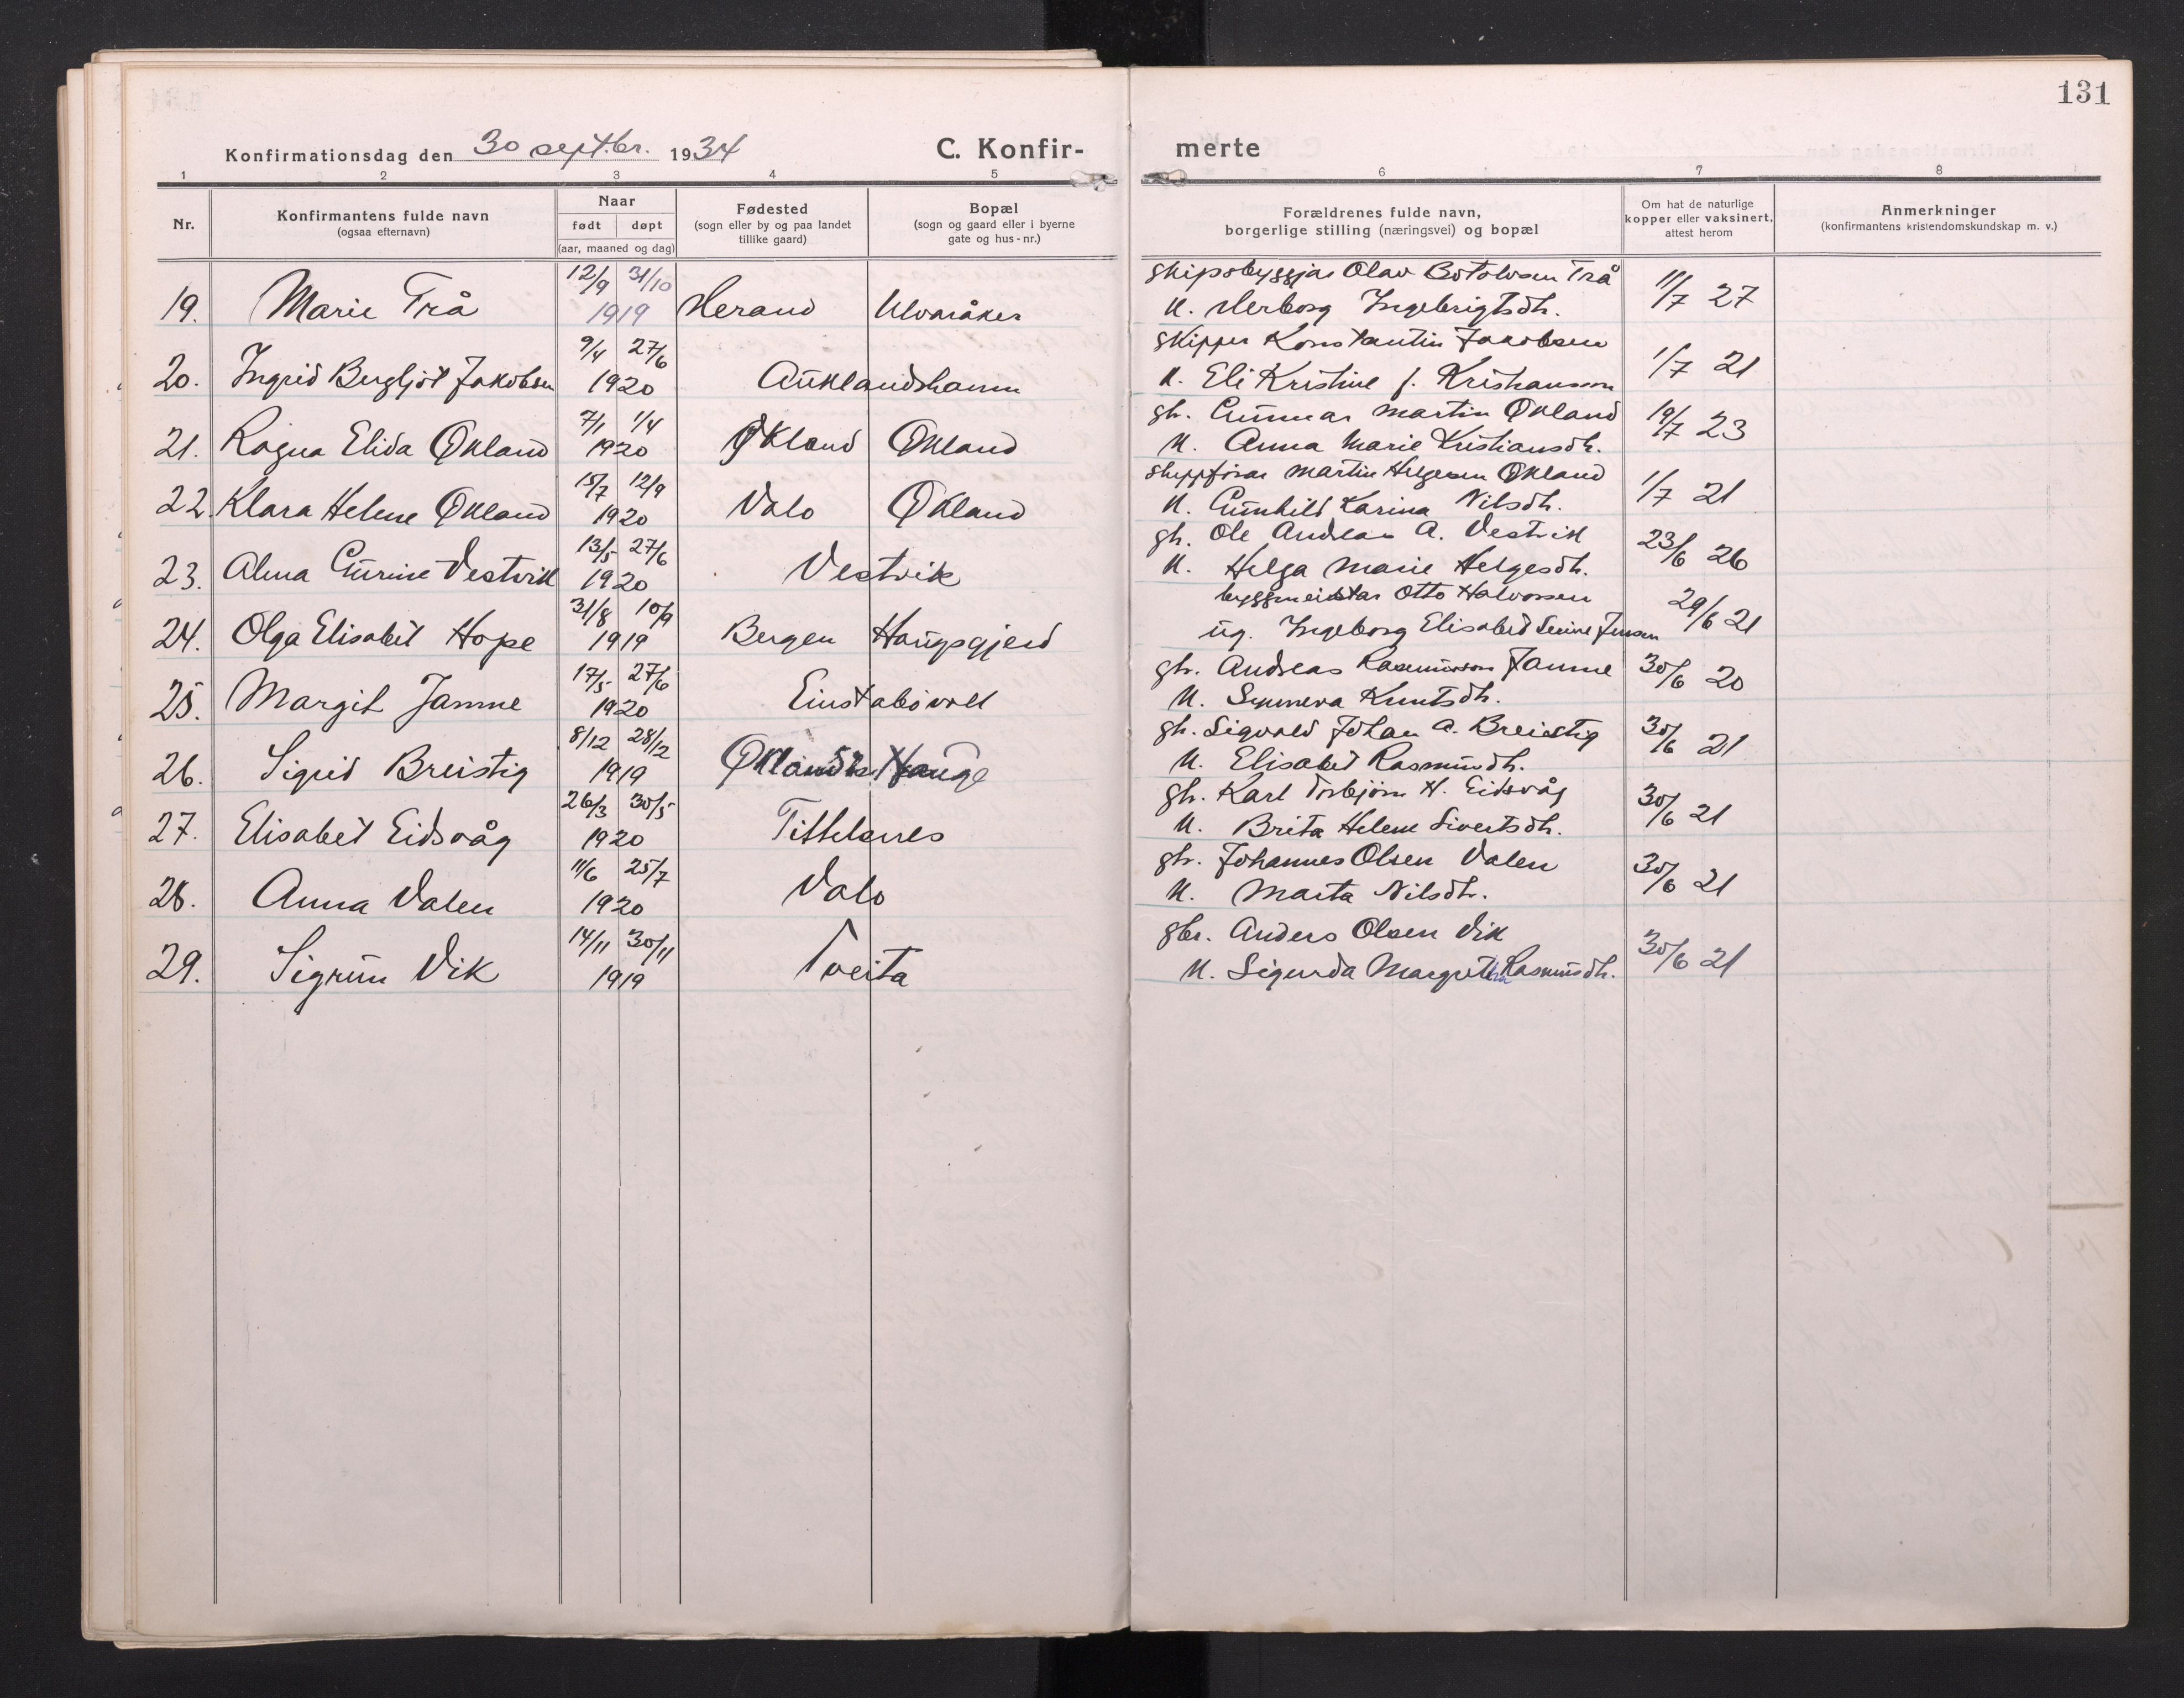 131
Konfirmationsdag den 30 septbr. 1934
C. Konfir-
merte
1 2 3 4 5 6 7 8
Nr.
Konfirmantens fulde navn
(ogsaa efternavn)
Naar
født døpt
(aar, maaned og dag)
Fødested
(sogn eller by og paa landet
tillike gaard)
Bopæl
(sogn og gaard eller i byerne
gate og hus-nr.)
Forældrenes fulde navn,
borgerlige stilling (næringsvei) og bopæl
Om hat de naturlige
kopper eller vaksinert,
attest herom
Anmerkninger
(konfirmantens kristendomskundskap m. v.)
12/9 31/10 skipsbyggjar Olav Botolvsen Trå
19. Marie Trå 1919 Herand K. Herborg Ingebrigtsdtr. 11/7 27
9/4 27/6 skipper Konstantin Jakobsen
20. Ingrid Bergljot Jakobsen 1920 Auklandshamn K. Eli Kristine f. Kristiansen 1/7 21
7/1 1/4 gbr. Gunnar Martin Økland
21. Ragna Elida Økland 1920 Økland Økland K. Anna Marie Kristiansdtr. 19/7 23
15/7 12/9 Martin Helgesen Økland
22. Klara Helene Økland 1920 Valo Økland K. Gunhild Karina Nilsdtr. 1/7 21
13/5 27/6 gbr. Ole Andreas A. Vestvik
23. Alma Gurine Vestvik 1920 Vestvik K. Helga Marie Helgesdtr. 23/6 26
31/8 10/9 byggmeistar Otto Halvorsen
24. Olga Elisabet Hope 1919 Bergen Haugsgjerd ug. Ingeborg Elisabed Jensen 29/6 21
17/5 27/6 gbr. Andreas Rasmusson Jamne
25. Margit Jamne 1920 Einstabøvoll K. Synneva Knutsdtr. 30/6 20
8/12 28/12 gbr. Sigvald Johan A. Breistig
26. Sigrid Breistig 1919 Hauge K. Elisabet Rasmusdtr. 30/6 21
26/3 30/5 gbr. Karl Torbjørn H. Eidsvåg
27. Elisabet Eidsvåg 1920 Tittelsnes K. Brita Helene Sivertsdtr. 30/6 21
11/6 25/7 gbr. Johannes Olsen Valen
28. Anna Valen 1920 Valo K. Marta Nilsdtr. 30/6 21
14/11 30/11 gbr. Anders Olsen Vik
29. Sigrun Vik 1919 Tveita K. Sigurda Margretha Rasmusdtr. 30/6 21